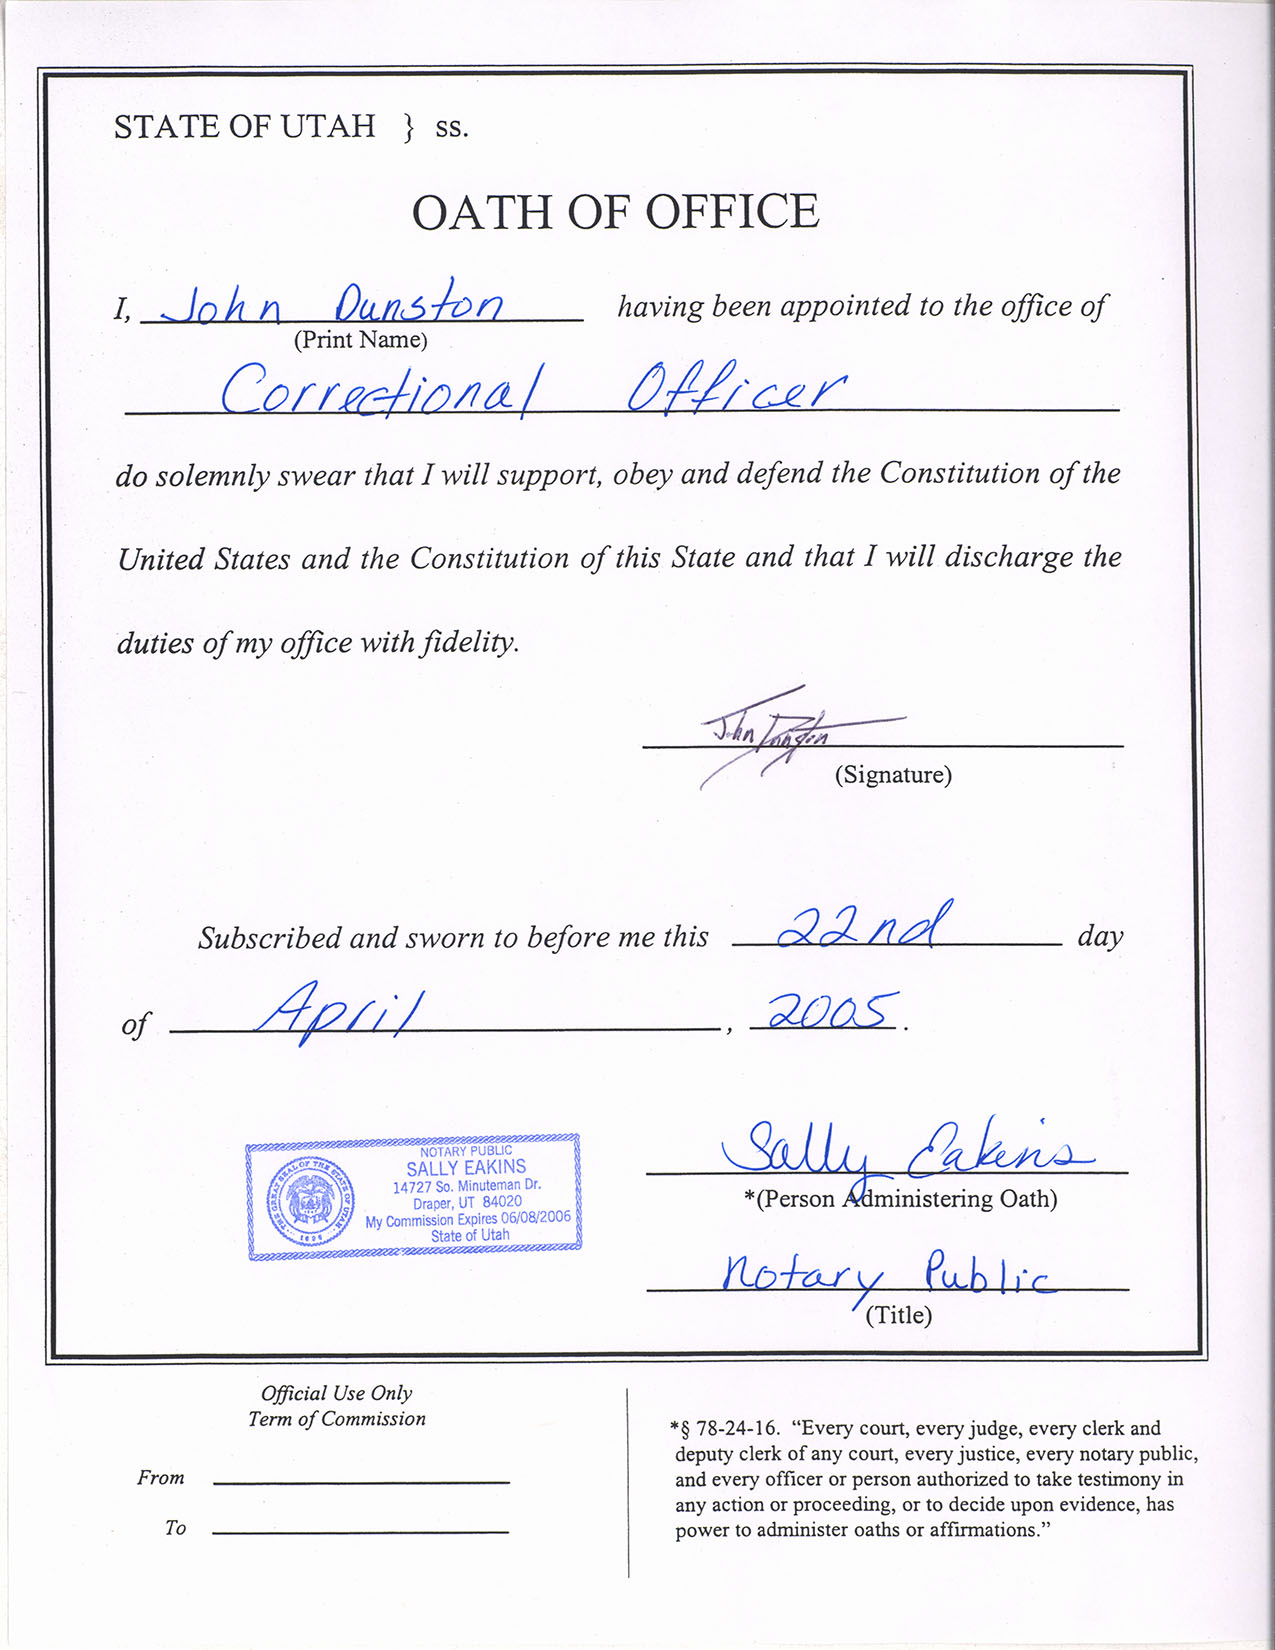 STATE OF UTAH } ss.
OATH OF OFFICE
I, John Dunston having been appointed to the office of
(Print Name)
Correctional Officer
do solemnly swear that I will support, obey and defend the Constitution of the
United States and the Constitution of this State and that I will discharge the
duties of my office with fidelity.
John Dunston
(Signature)
Subscribed and sworn to before me this 22nd day
of April, 2005.
NOTARY PUBLIC
SALLY EAKINS
14727 So. Minuteman Dr.
Draper, UT 84020
My Commission Expires 06/08/2006
State of Utah
THE GREAT SEAL OF THE STATE OF UTAH
1896
Sally Eakins
*(Person Administering Oath)
Notary Public
(Title)
Official Use Only
Term of Commission
From
To
*§ 78-24-16. “Every court, every judge, every clerk and
deputy clerk of any court, every justice, every notary public,
and every officer or person authorized to take testimony in
any action or proceeding, or to decide upon evidence, has
power to administer oaths or affirmations.”